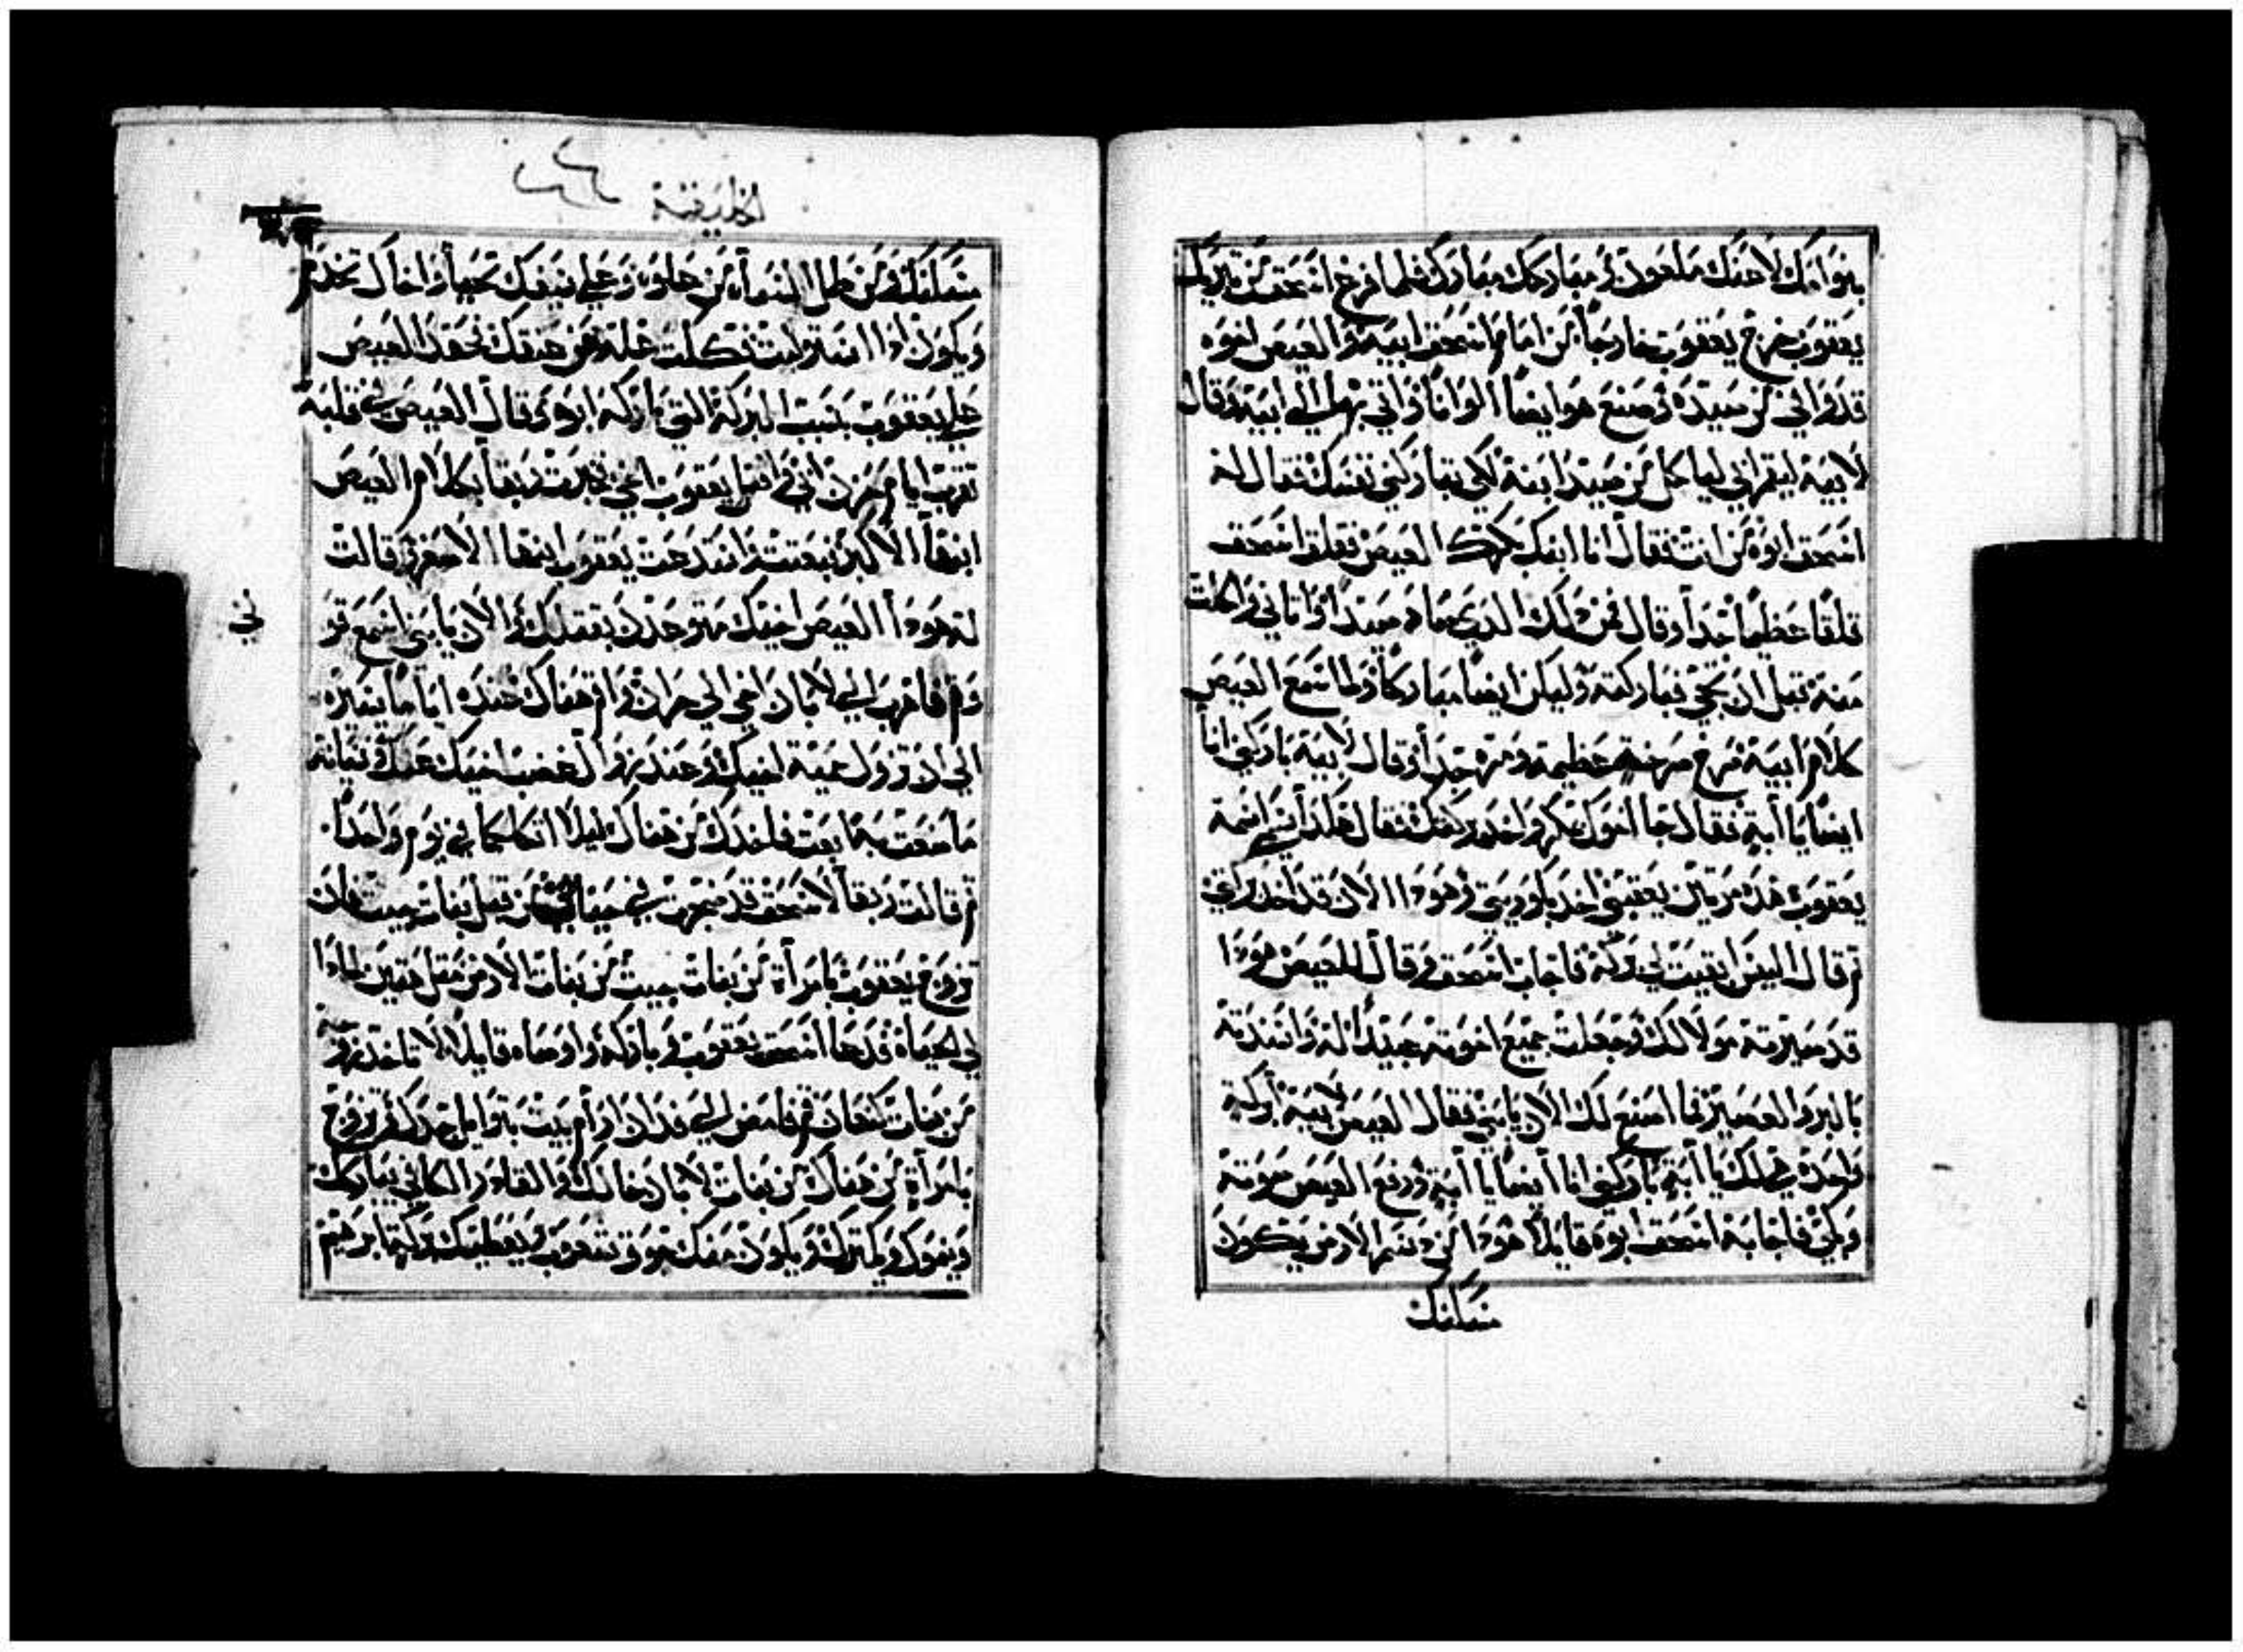 بنوا امك لاعنك ملعون ومباركك مبارك فلما فرغ اسحق من تبريك
يعقوب خرج يعقوب خارجا من امام اسحق ابيه والعيص اخوه
قد وافي من صيده وصنع هو ايضا الوانا واتي بهم الي ابيه وقال
لابيه ليقم ابي لياكل من صيد ابنه لكي تباركني نفسك فقال له
اسحق ابوه من انت فقال انا ابنك بكرك العيص فقلق اسحق
قلقا عظيما جدا وقال فمن ذلك الذي صاد صيدا واتاني واكلت
منه قبل ان تجي فباركته وليكن ايضا مباركا ولما سمع العيص
كلام ابيه صرخ صرخة عظيمة ومرة جدا وقال لابيه باركني انا
ايضا يا ابة فقال جا اخوك بمكر واخذ بركتك فقال هكذا اسم اسمه
يعقوب هذه مرتين يعقبني اخذ بكوريتي وهوذا الان قد اخذ بركتي
ثم قال اليس ابقيت لي بركة فاجاب اسحق وقال للعيص هوذا
قد صيرته مولا لك وجعلت جميع اخوته عبيدا له واسندته
بالبر والعصير فما اصنع لك الان يا بني فقال العيص لابيه ابركة
واحدة هي لك يا ابة باركني انا ايضا يا ابة ورفع العيص صوته
وبكي فاجابه اسحق ابوه قايلا هوذا من دسم الارض يكون
مسكنك
الخليقة ٤٦
مسكنك ومن طل السماء من علوه وعلي سيفك تحيا واخاك تخدم
ويكون اذا استوليت تفكك غله عن عنقك فحقد العيص
علي يعقوب بسبب البركة التي باركه ابوه وقال العيص في قلبه
تقرب ايام حزن ابي فاقتل يعقوب اخي فخبرت ربقا بكلام العيص
ابنها الاكبر فبعثت واستدعت يعقوب ابنها الاصغر وقالت
له هوذا العيص اخيك متوعدك بقتلك والان يا بني اسمع قو
لي
وقم فاهرب الي لابان اخي الي حران واقم هناك عنده اياما يسيره
الي ان تزول حمية اخيك وعند زوال غضب اخيك عنك ونسيانه
ما صنعت به ابعث فاخذك من هناك ليلا اثكلكما في يوم واحدا
ثم قالت ربقا لاسحق قد ضجرت في حياتي من قبل بنات حيث فان
تزوج يعقوب بامرأة من بنات حيث من بنات الارض مثل هتين لماذا
لي الحياة فدعا اسحق يعقوب وباركه واوصاه قايلا لا تاخذ زوجة
من بنات كنعان قم فامض الي فدان ارام بيت بتوايل جدك وتزوج
بامرأة من هناك من بنات لابان خالك والقادر الكافي يباركك
وينميك ويكثرك ويكون منك جوق شعوب ويعطيك بركة ابرهيم